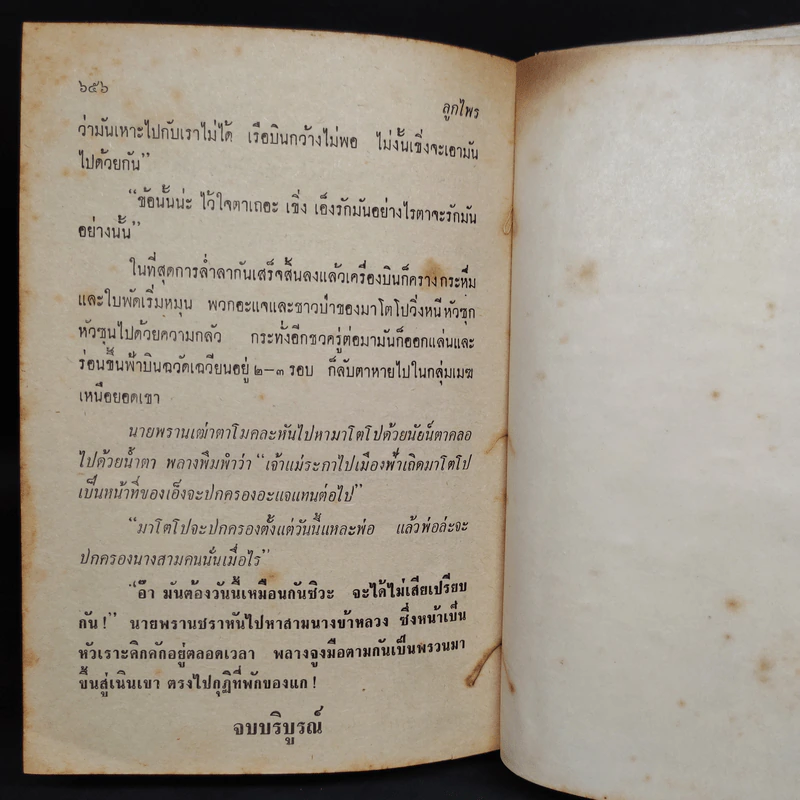 ๖๕๖
ลูกไพร
ว่ามันเหาะไปกับเราไม่ได้ เรือบินกว้างไม่พอ ไม่งั้นเชิ่งจะเอามัน
ไปด้วยกัน”
“ข้อนั้นน่ะ ไว้ใจตาเถอะ เชิ่ง เอ็งรักมันอย่างไรตาจะรักมัน
อย่างนั้น”
ในที่สุดการล่ำลากันเสร็จสิ้นลงแล้วเครื่องบินก็ครางกระหึ่ม
และใบพัดเริ่มหมุน พวกอะแจและชาวป่าของมาโตโปวิ่งหนีหัวซุก
หัวซุนไปด้วยความกลัว กระทั่งอีกชวครู่ต่อมามันก็ออกแล่นและ
ร่อนขึ้นฟ้าบินฉวัดเฉวียนอยู่ ๒–๓ รอบ ก็ลับตาหายไปในกลุ่มเมฆ
เหนือยอดเขา
นายพรานเฒ่าตาโมคละหันไปหามาโตโปด้วยนัยน์ตาคลอ
ไปด้วยน้ำตา พลางพึมพำว่า “เจ้าแม่ระกาไปเมืองฟ้าเถิดมาโตโป
เป็นหน้าที่ของเอ็งจะปกครองอะแจแทนต่อไป”
“มาโตโปจะปกครองตั้งแต่วันนี้แหละพ่อ แล้วพ่อล่ะจะ
ปกครองนางสามคนนั่นเมื่อไร”
“อ๊า มันต้องวันนี้เหมือนกันซิวะ จะได้ไม่เสียเปรียบ
กัน!” นายพรานชราหันไปหาสามนางข้าหลวง ซึ่งหน้าเป็น
หัวเราะคิกคักอยู่ตลอดเวลา พลางจูงมือตามกันเป็นพรวนมา
ขึ้นสู่เนินเขา ตรงไปกุฏิที่พักของแก!
จบบริบูรณ์